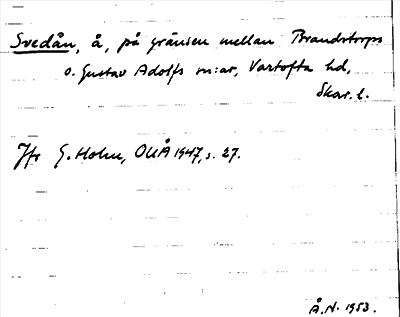 Svedån, å, på gränsen mellan Brandstorps
o. Gustav Adolfs sn:ar, Vartofta hd,
Skar. l.
Jfr G. Holm, OUÅ 1947, s. 27.
Å.N. 1953.